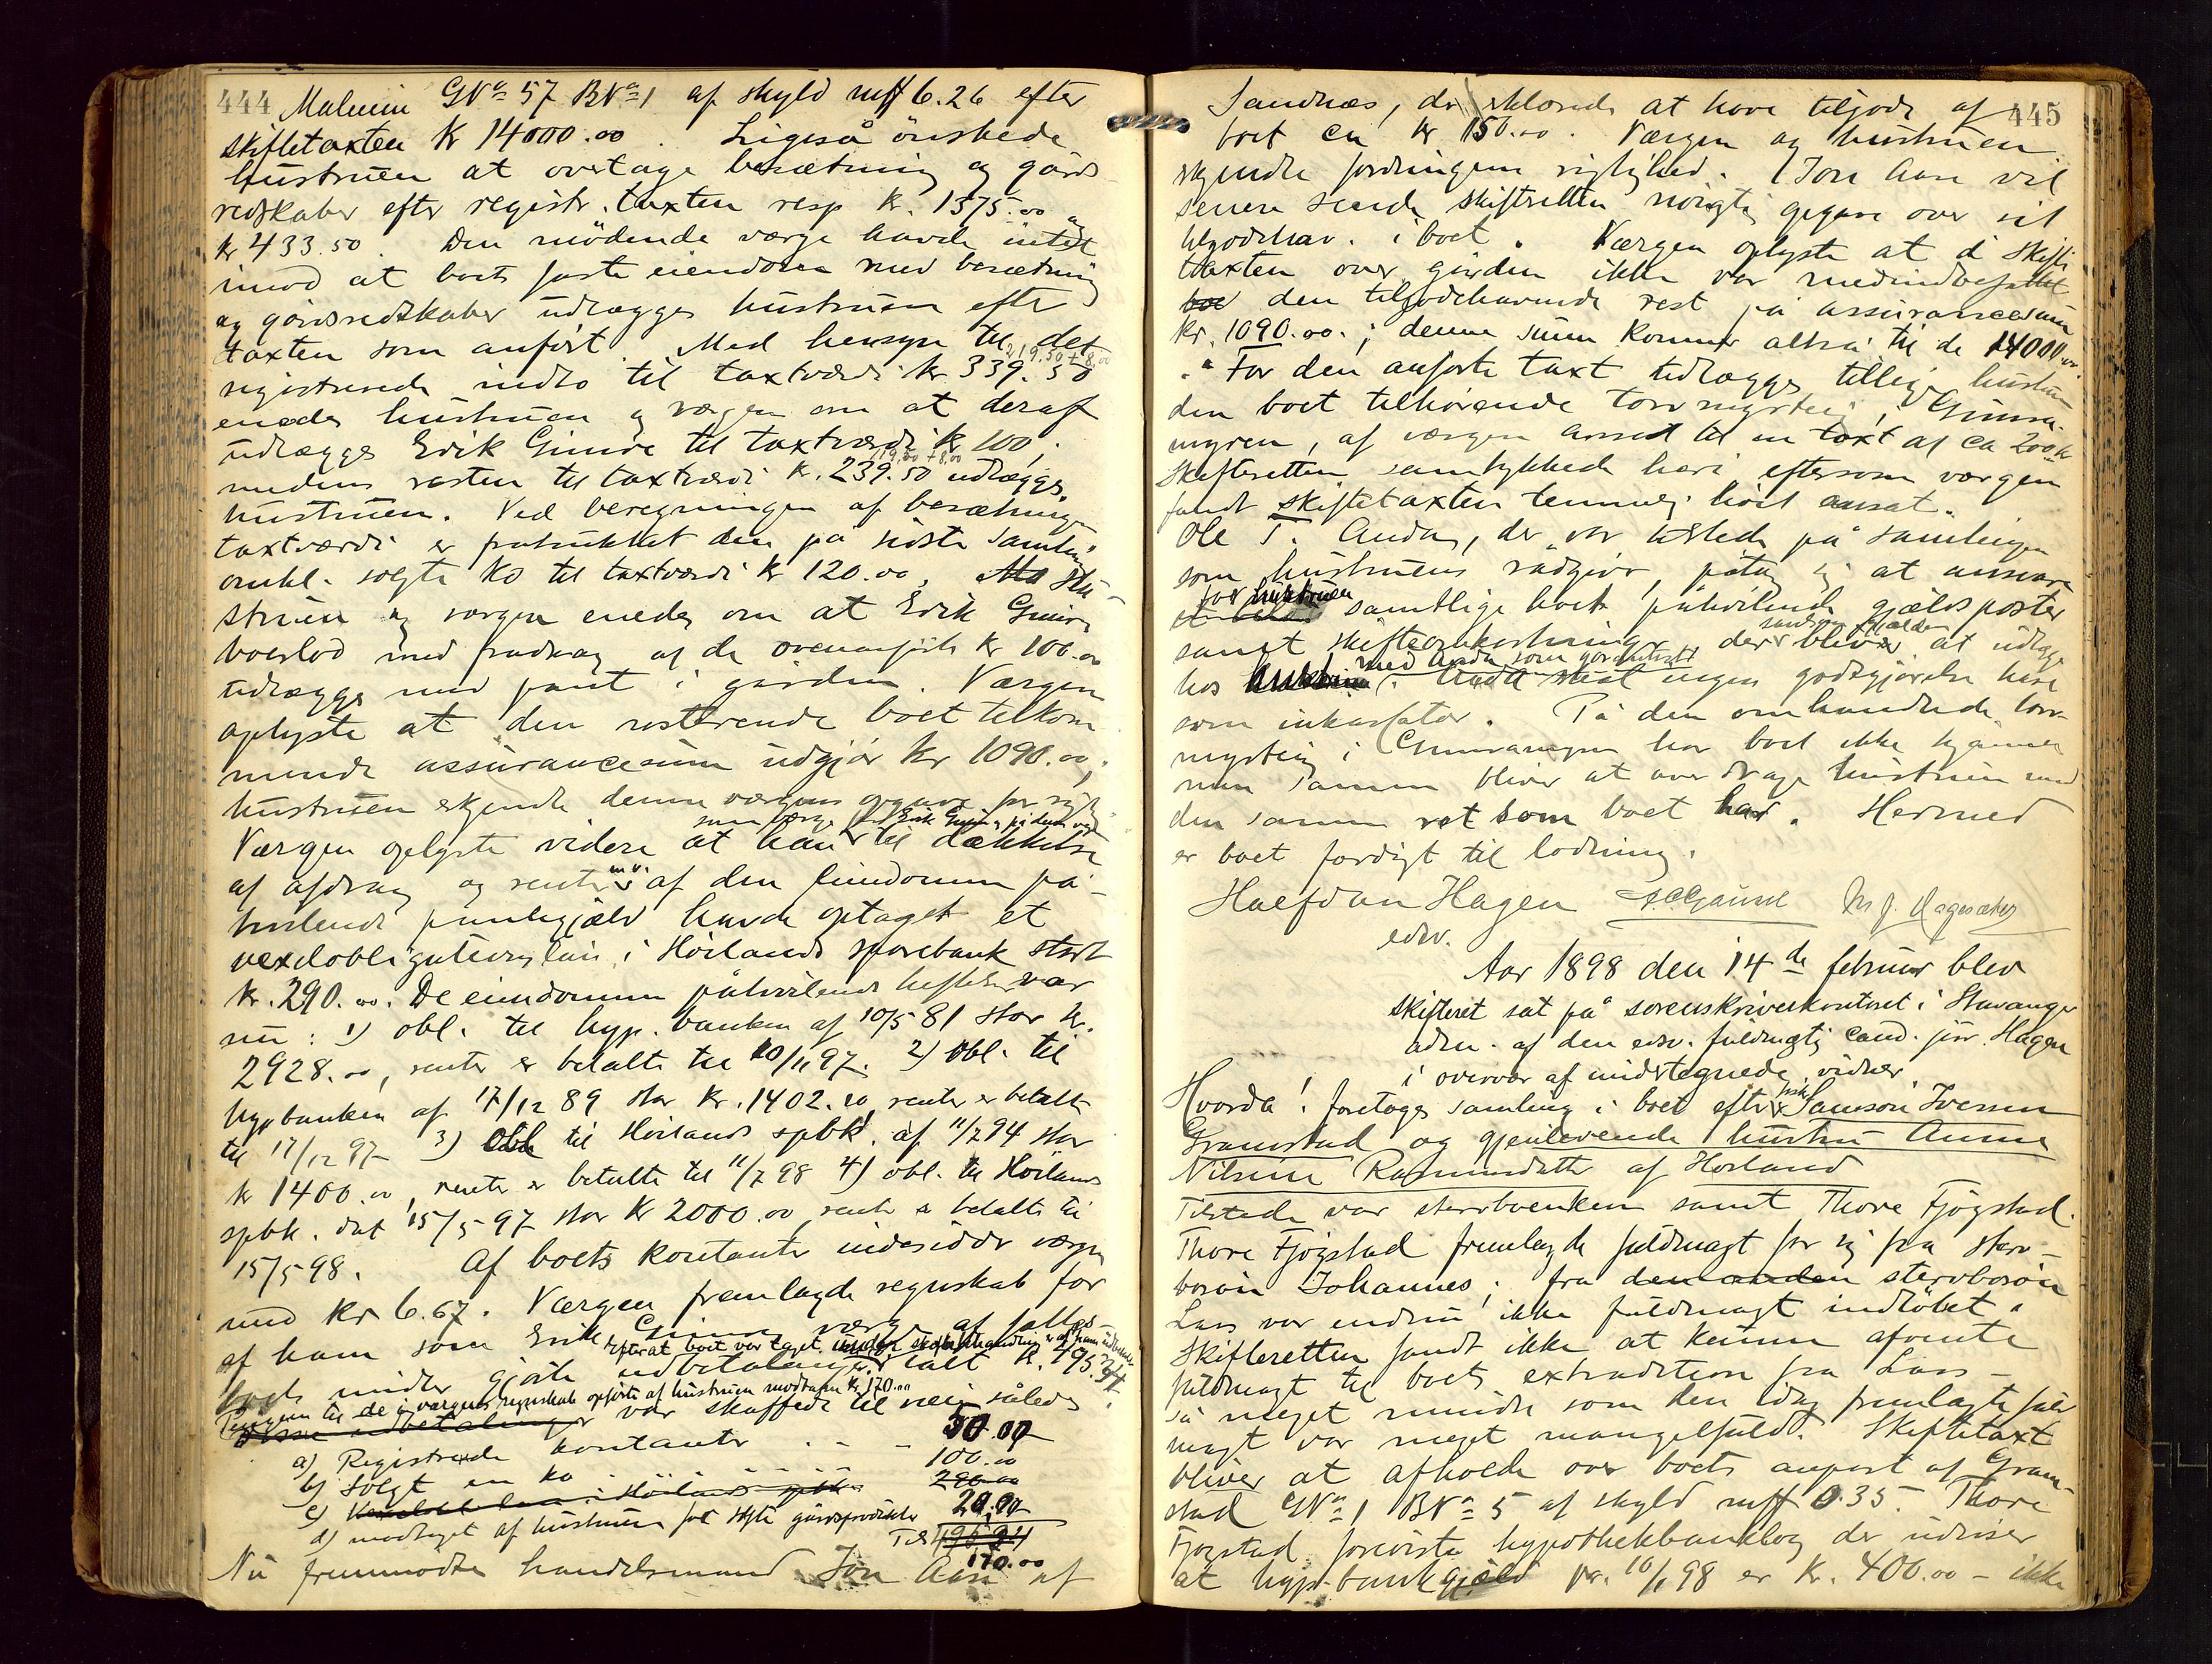 444 Malmin GNo 57 BNo 1 af skyld mk 6.26 efter
skiftetaxten kr 14000.00. Ligeså ønskede
hustruen at overtage besætning og gårds
redskaber efter registr. taxten resp kr. 1375.00 og
kr 433.50. Den mødende værge havde intet
imod at boets faste eiendom med besætning
og gårdsredskaber udlægges hustruen efter
taxten som anført. Med hensyn til det
219.50 + 8.00
registrerede indbo til taxtværdi kr. 339.50
enedes hustruen og værgen om at deraf
udlægges Erik Gimre til taxtværdi kr 100,
119.50 + 8.00
medens resten til taxtværdi kr. 239.50 udlægges
hustruen. Ved beregningen af besætningens
taxtværdi er fratrukket den på sidste samling
omhl. solgte ko til taxtværdi kr 120.00. Hu-
struen og værgen enedes om at Erik Gimres
boeslod med fradrag af de ovenanførte kr 100.00
udlægges med pant i gården. Værgen
oplyste at den resterende boet tilkom-
mende assurancesum udgjør kr 1090.00;
hustruen erkjendte denne værgens opgave for rigtig
som værge for Erik Gimre på hans vegne
Værgen oplyste videre at han til dækkelse
af afdrag og renter m.v. af den eiendommen på-
hvilende pantegjæld havde optaget et
vexelobligationslån i Høilands sparebank stort
kr. 290.00. De eiendommen påhvilende heftelser var
nu: 1) obl. til hyp. banken af 10/5 81 stor kr.
2928.00, renter er betalte til 10/11 97. 2) Obl. til
hypbanken af 17/12 89 stor kr. 1402.20, renter er betalt
til 17/12 97 3) Obl til Høilands spbk. af 11/7 94 stor
kr 1400.00, renter er betalte til 11/7 98 4) obl. til Høilands
spbk. dat 15/5 97 stor kr 2000.00 renter er betalte til
15/5 98. Af boets kontanter indesidder værgen
med kr 6.67. Værgen fremlagde regnskab for
af ham som Erik Gimres værge af fælles-
efterat boet var taget under skiftebehandling er af ham udbetalt
boets midler gjorte udbetalinger ialt kr. 195.34.
Pengene til de i værgens regnskab opførte af hustruen modtagne kr 170.00
Disse udbetalinger var skaffede til veie således
a) Registrerede kontanter 50.00
b) Solgt en ko 100.00
c) Vexelobl. lån i Høilands spbk. 290.00
d) modtaget af hustruen for solgte gårdsprodukter 20.00
Tils 195.34
170.00
Nu fremmødte handelsmand Jon Aase af
445
Sandnæs, der erklærede at have tilgode af
boet ca kr 150.00. Værgen og hustruen
erkjendte fordringens rigtighed. Jon Aase vil
senere sende skifteretten nøiagtig opgave over sit
tilgodehav. i boet. Værgen oplyste at i skifte
taxten over gården ikke var medindbefattet
boe den tilgodehavende rest på assurancesum
kr. 1090.00.; denne sum kommer altså til de 14000.00.
For den anførte taxt udlægges tillige hustruen
den boet tilhørende torvmyrteig i Gimra-
myren, af værgen ansat til en taxt af ca 200 kr
Skifteretten samtykkede heri eftersom værgen
fandt skiftetaxten temmelig høit ansat.
Ole T. Auda, der var tilstede på samlingen
som hustruens rådgiver, påtog sig at ansvare
for hustruen
samtlige boets påhvilende gjældsposter
samt skifteomkostninger der bliver at udlægge
med Auda som garantist
hos hustruen. Auda skal ingen godtgjørelse have
som inkassator. På den omhandlede torv-
myrteig i Gimramyren har boet ikke hjemmel
men samme bliver at overdrage hustruen med
den samme ret som boet har. Hermed
er boet færdigt til lodning.
Halfdan Hagen
edsv.
Aar 1898 den 14de februar blev
skifteret sat på sorenskriverkontoret i Stavanger
adm. af den edsv. fuldmægtig cand. jur. Hagen
i overvær af undertegnede vidner
Hvorda! foretoges samling i boet efter Samson Iversen
Gramstad og gjenlevende hustru Anne
Nilsine Rasmusdatter af Høiland
Tilstede var sterboenken samt Thore Fjogstad.
Thore Fjogstad fremlagde fuldmagt for sig fra sterv-
bosøn Johannes; fra den anden stervbosøn
Lars var endnu ikke fuldmagt indløbet.
Skifteretten fandt ikke at kunne afvente
fuldmagt til boets extradition fra Lars –
så meget mindre som den idag fremlagte fuld
magt var meget mangelfuld. Skiftetaxt
bliver at afholde over boets anpart af Gram-
stad GNo 1 BNo 5 af skyld mk 0.35. Thore
Fjogstad foreviste hypothekbankbog der udviser
at hyp. bankgjæld pr. 10/1 98 er kr. 400.00 – ikke